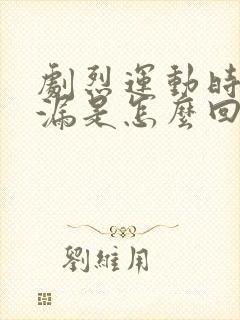 劇烈運動時
漏是怎麼回
劉維用